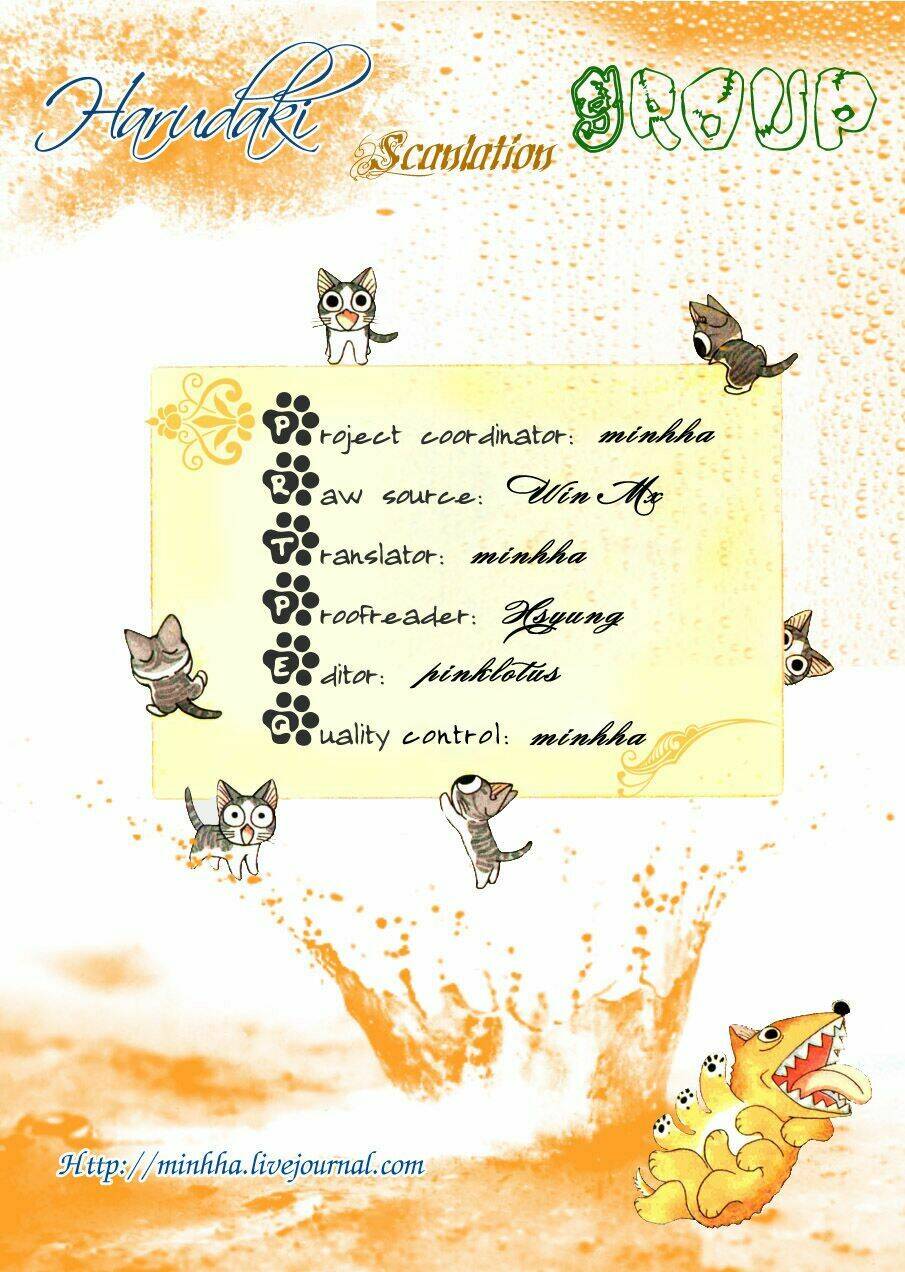 Harudaki Scanlation group
Project coordinator: minhha
Raw source: Win Mx
Translator: minhha
Proofreader: Hsyung
Editor: pinklotus
Quality control: minhha
Http://minhha.livejournal.com